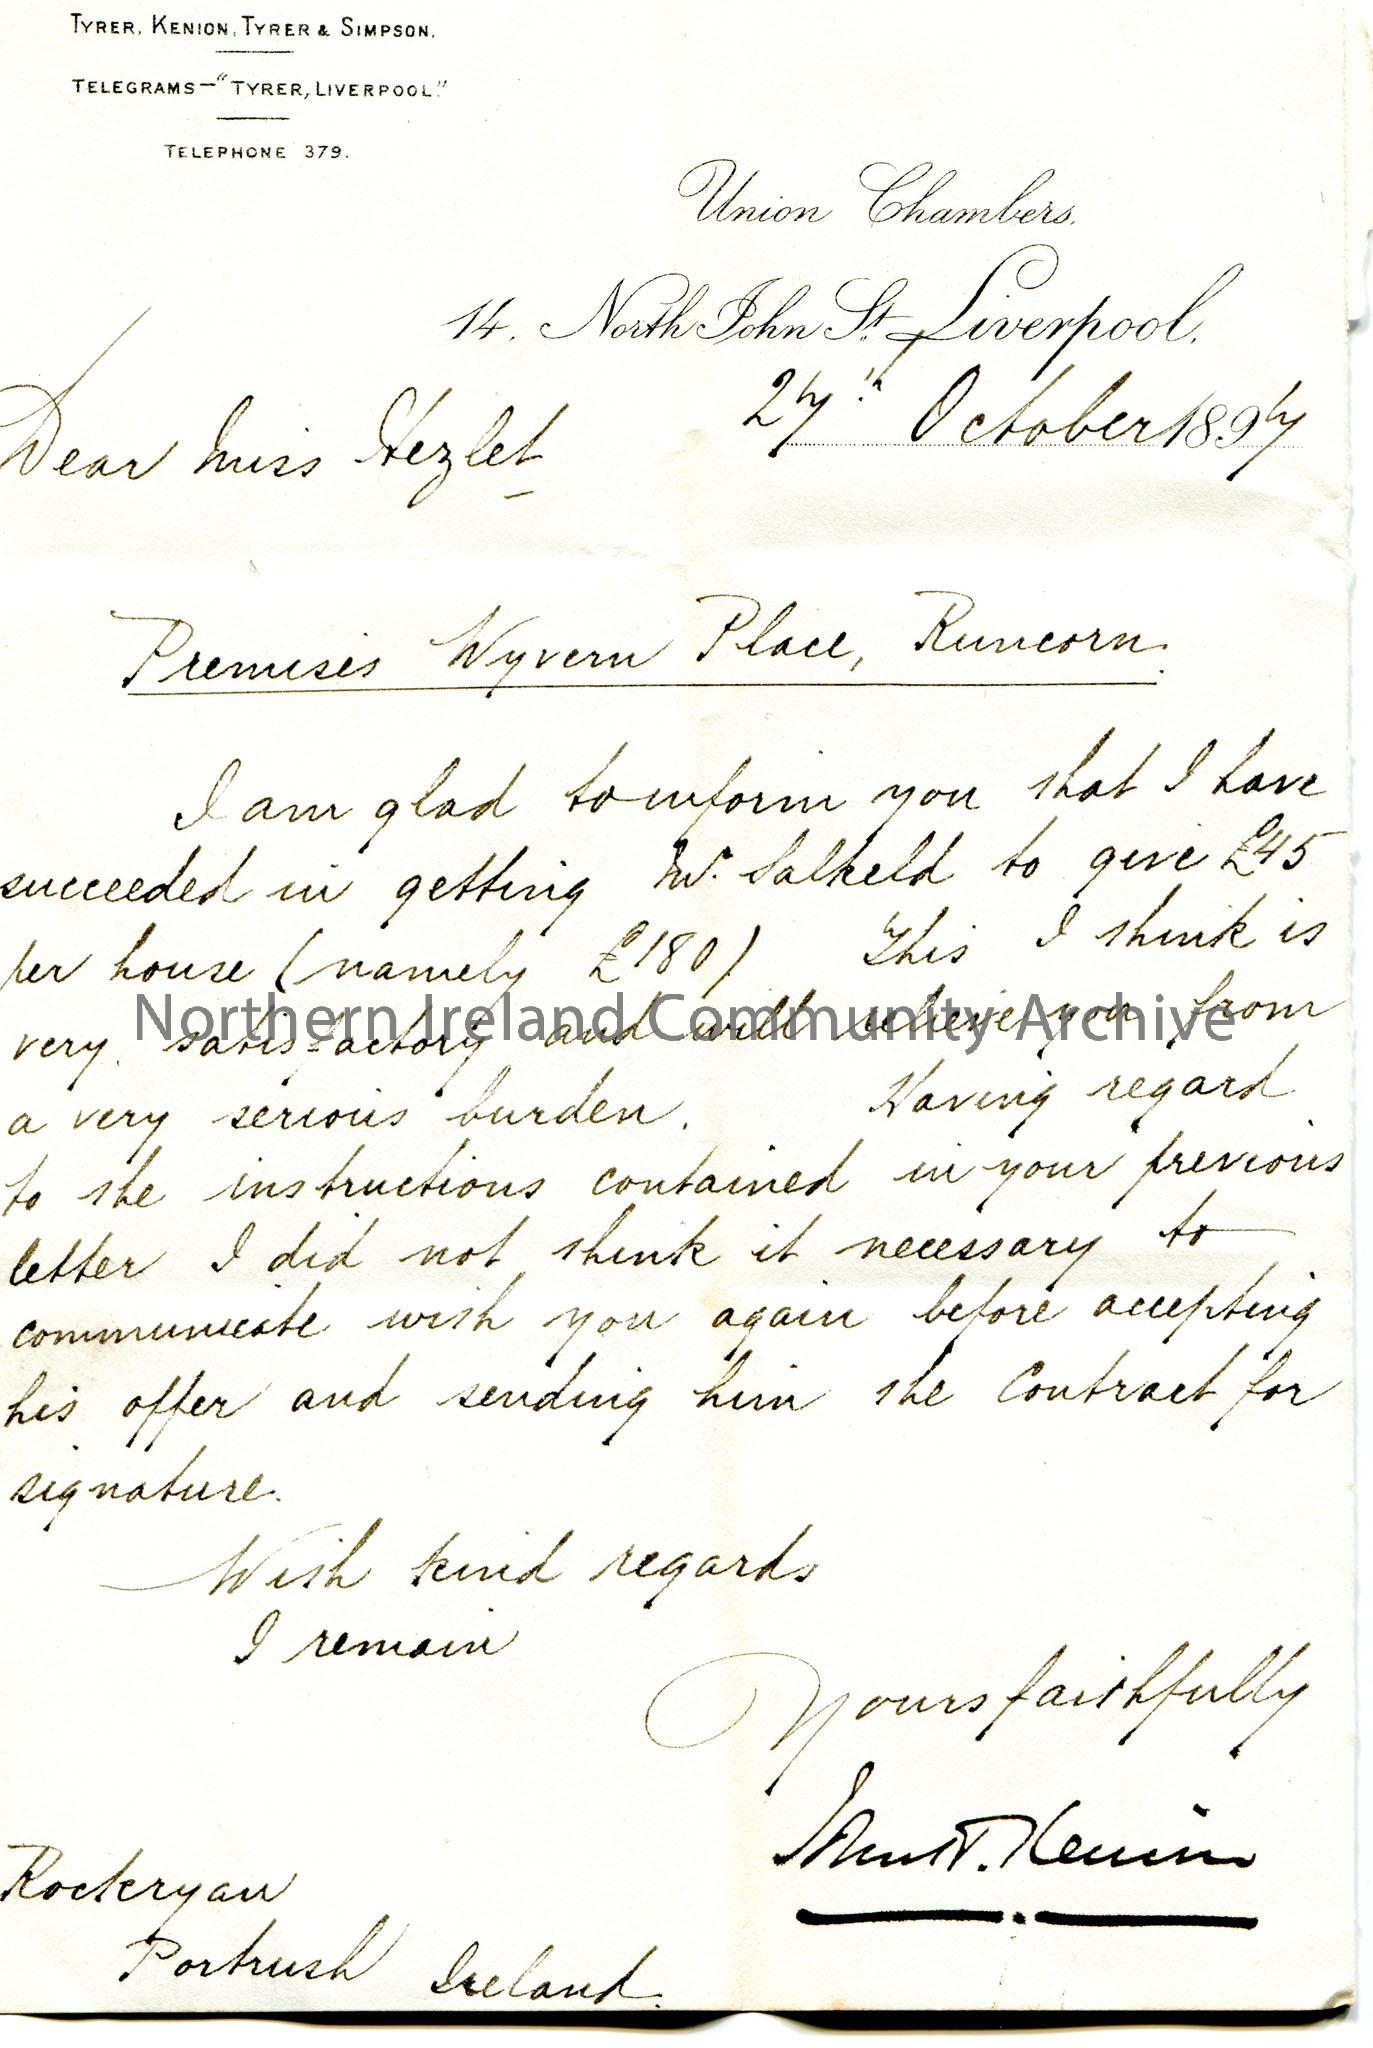 TYRER, KENION, TYRER & SIMPSON.
TELEGRAMS—"TYRER, LIVERPOOL."
TELEPHONE 379.
Union Chambers.
14. North John St. Liverpool.
27th October 1897
Dear Miss Hezlet
Premises Wyvern Place, Runcorn.
I am glad to inform you that I have
succeeded in getting Mr. Salkeld to give £45
per house (namely £180) This I think is
very satisfactory and will relieve you from
Northern Ireland Community Archive
a very serious burden. Having regard
to the instructions contained in your previous
letter I did not think it necessary to
communicate with you again before accepting
his offer and sending him the Contract for
signature.
With kind regards
I remain
Yours faithfully
Kenion
Rockryan
Portrush Ireland.